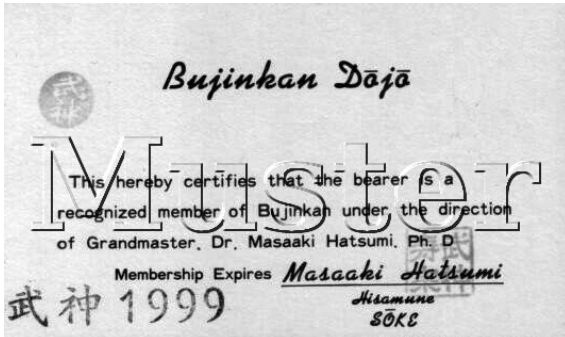 Bujinkan Dōjō
武神
Muster
This hereby certifies that the bearer is a
recognized member of Bujinkan under the direction
of Grandmaster. Dr. Masaaki Hatsumi. Ph. D.
Membership Expires Masaaki Hatsumi
武神 1999
Hisamune
SŌKE